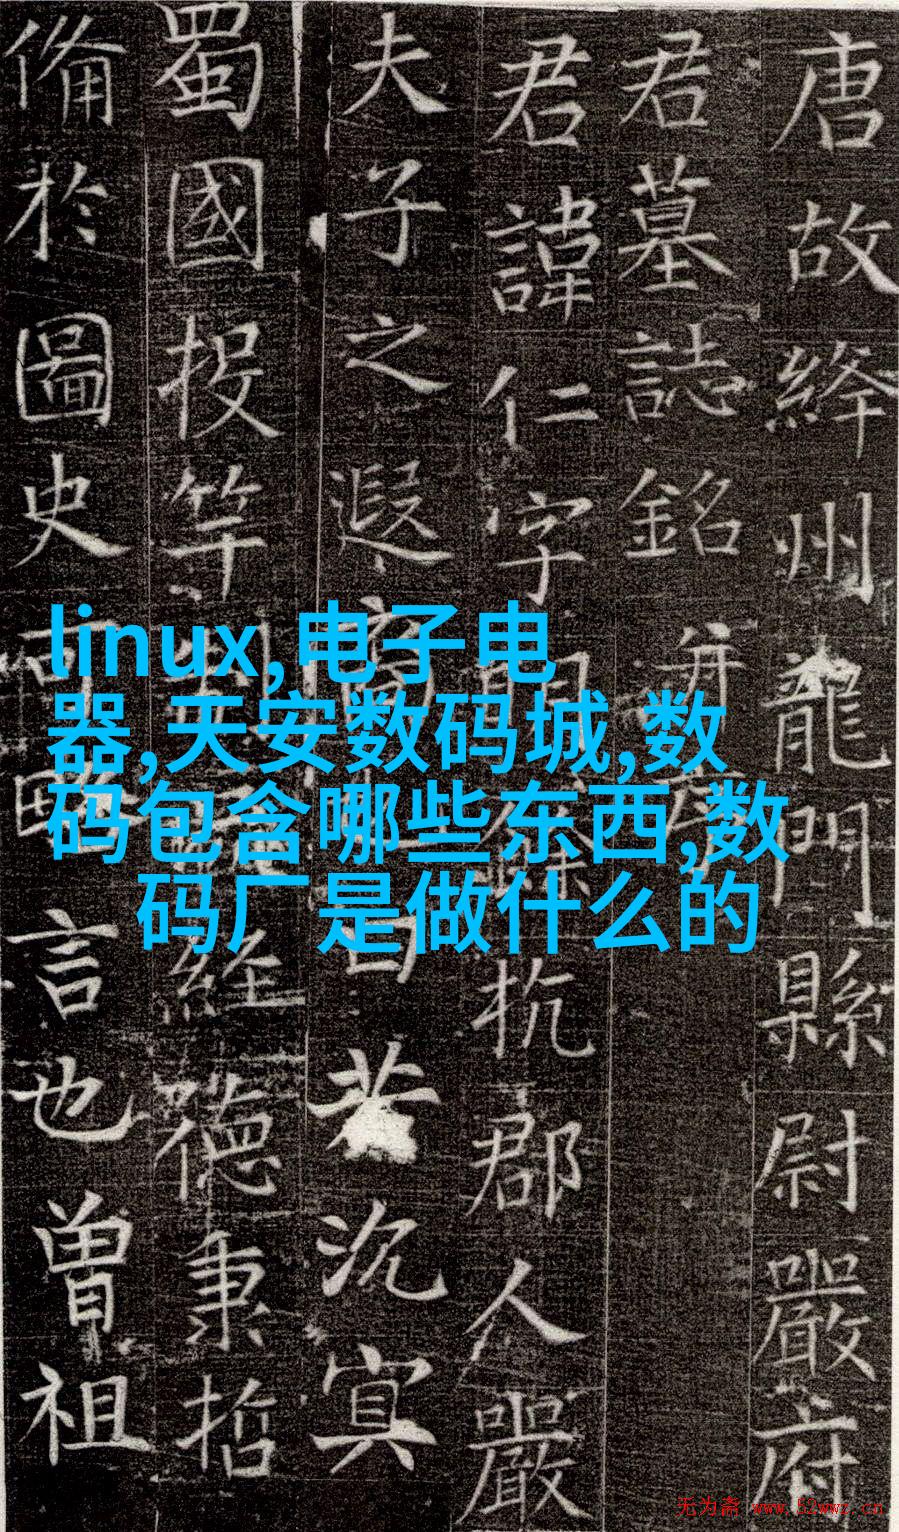 linux,电子电
器,天安数码城,数
码包含哪些东西,数
码厂是做什么的
唐故絳州龍門縣尉嚴府
君墓誌銘 并序
君諱仁字餘杭郡人嚴
夫子之遐裔若沉冥
蜀國投竿經德秉哲
備於圖史可略言也曾祖
无为斋 www.52wwz.cn